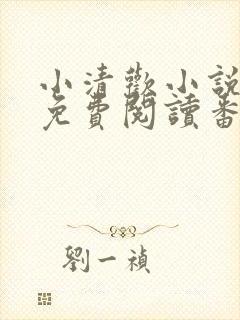 小清歡小說
免費閱讀番
劉一禎